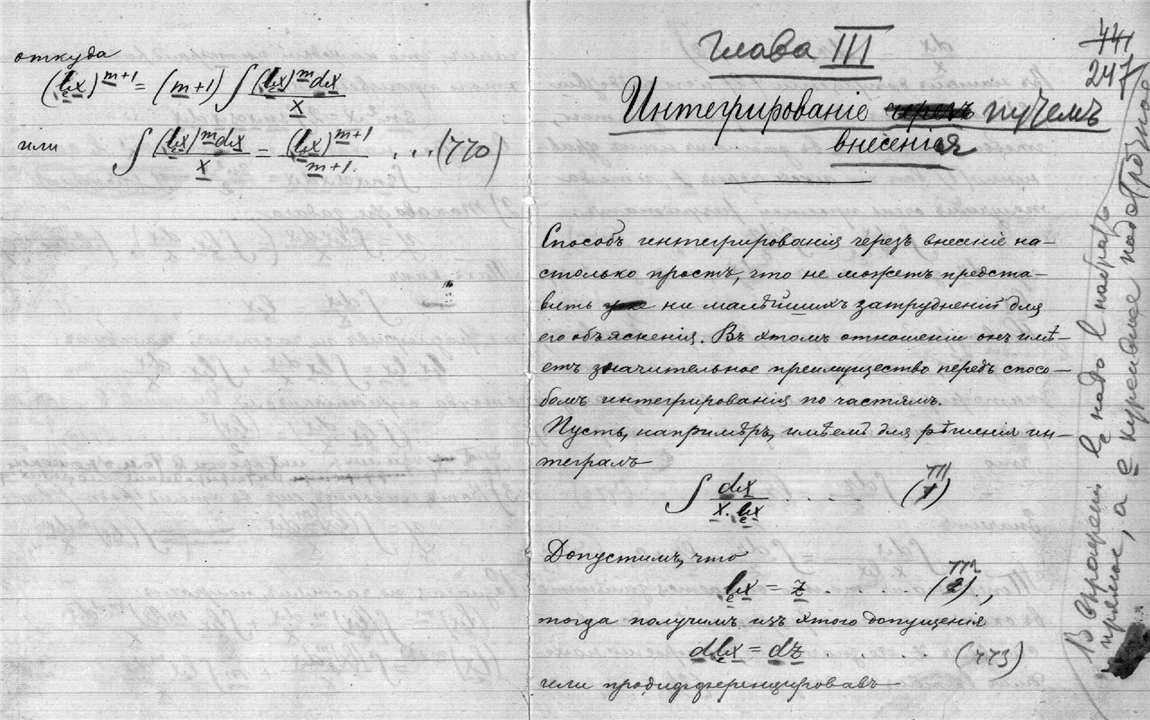 откуда
(lₑx)^{m+1} = (m+1) ∫ (lₑx)^m dx / x
или
∫ (lₑx)^m dx / x = (lₑx)^{m+1} / m+1 . . . (770)
Глава III
441
247
Интегрированіе черезъ путемъ
внесенія
Способъ интегрированія черезъ внесеніе на-
столько простъ, что не можетъ предста-
влять уже ни малѣйшихъ затрудненій для
его объясненія. Въ этомъ отношеніи онъ имѣ-
етъ значительное преимущество передъ спосо-
бомъ интегрированія по частямъ.
Пусть, напримѣръ, имѣемъ для рѣшенія ин-
тегралъ
∫ dx / x. lₑx . . . . . (771)
Допустимъ, что
lₑx = z . . . . . (772),
тогда получимъ изъ этого допущенія
dlₑx = dz (773)
или продифференцировавъ
В выражении le надо l набрать
прямое, а e курсивное подстрочное